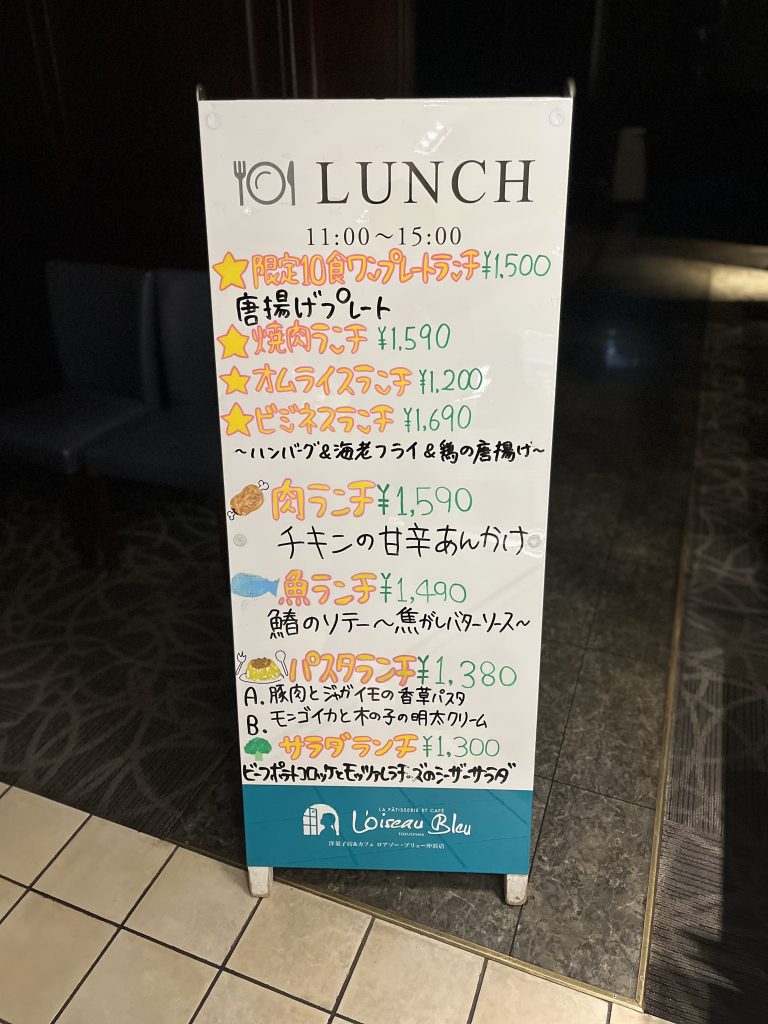 LUNCH
11:00～15:00
限定10食ワンプレートランチ ¥1,500
唐揚げプレート
焼肉ランチ ¥1,590
オムライスランチ ¥1,200
ビジネスランチ ¥1,690
～ハンバーグ&海老フライ&鶏の唐揚げ～
肉ランチ ¥1,590
チキンの甘辛あんかけ
魚ランチ ¥1,490
鰆のソテー～焦がしバターソース～
パスタランチ ¥1,380
A. 豚肉とジャガイモの香草パスタ
B. モンゴイカと木の子の明太クリーム
サラダランチ ¥1,300
ビーフポテトコロッケとモッツァレラチーズのシーザーサラダ
LA PÂTISSERIE ET CAFÉ
L'Oiseau Bleu
TOKUSHIMA
洋菓子店&カフェ ロアゾー・ブリュー沖浜店